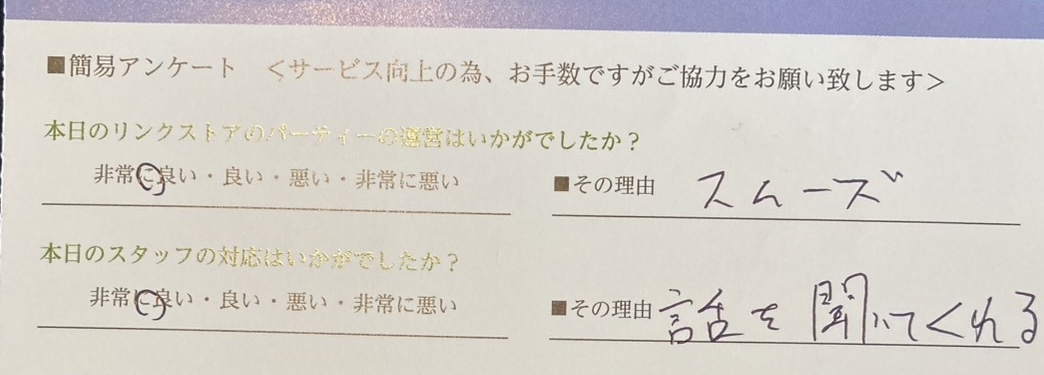 ■簡易アンケート　＜サービス向上の為、お手数ですがご協力をお願い致します＞
本日のリンクストアのパーティーの運営はいかがでしたか？
非常に良い・良い・悪い・非常に悪い　■その理由　スムーズ
本日のスタッフの対応はいかがでしたか？
非常に良い・良い・悪い・非常に悪い　■その理由　話を聞いてくれる